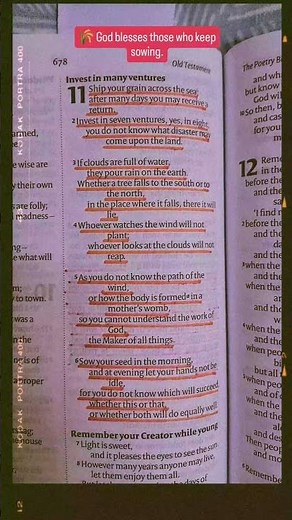 🌴 God blesses those who keep
sowing.
KODAK PORTRA 400
678
Old Testament
The Poetry B
Invest in many ventures
11 Ship your grain across the sea;
after many days you may receive a
return.
2 Invest in seven ventures, yes, in eight;
you do not know what disaster may
come upon the land.
3 If clouds are full of water,
they pour rain on the earth.
Whether a tree falls to the south or to
the north,
in the place where it falls, there it will
lie.
4 Whoever watches the wind will not
plant;
whoever looks at the clouds will not
reap.
5 As you do not know the path of the
wind,
or how the body is formed a in a
mother's womb,
so you cannot understand the work of
God,
the Maker of all things.
6 Sow your seed in the morning,
and at evening let your hands not be
idle,
for you do not know which will succeed,
whether this or that,
or whether both will do equally well.
Remember your Creator while young
7 Light is sweet,
and it pleases the eyes to see the sun.
8 However many years anyone may live,
let them enjoy them all.
e wise are
y their own
rate folly;
madness –
e what will
to town.
was a
roper
house
and wh
but know
God wil
10 So then, b
and cas
for you
12 Reme
in the
before the
and the
'I find
2 before the
and the
and the
3 when the
and the
4 when the
and the
when peop
but all
5 when peop
and of
when the
and the
and des
Then people
and mo
6 Remembe
KODAK PORTRA
12